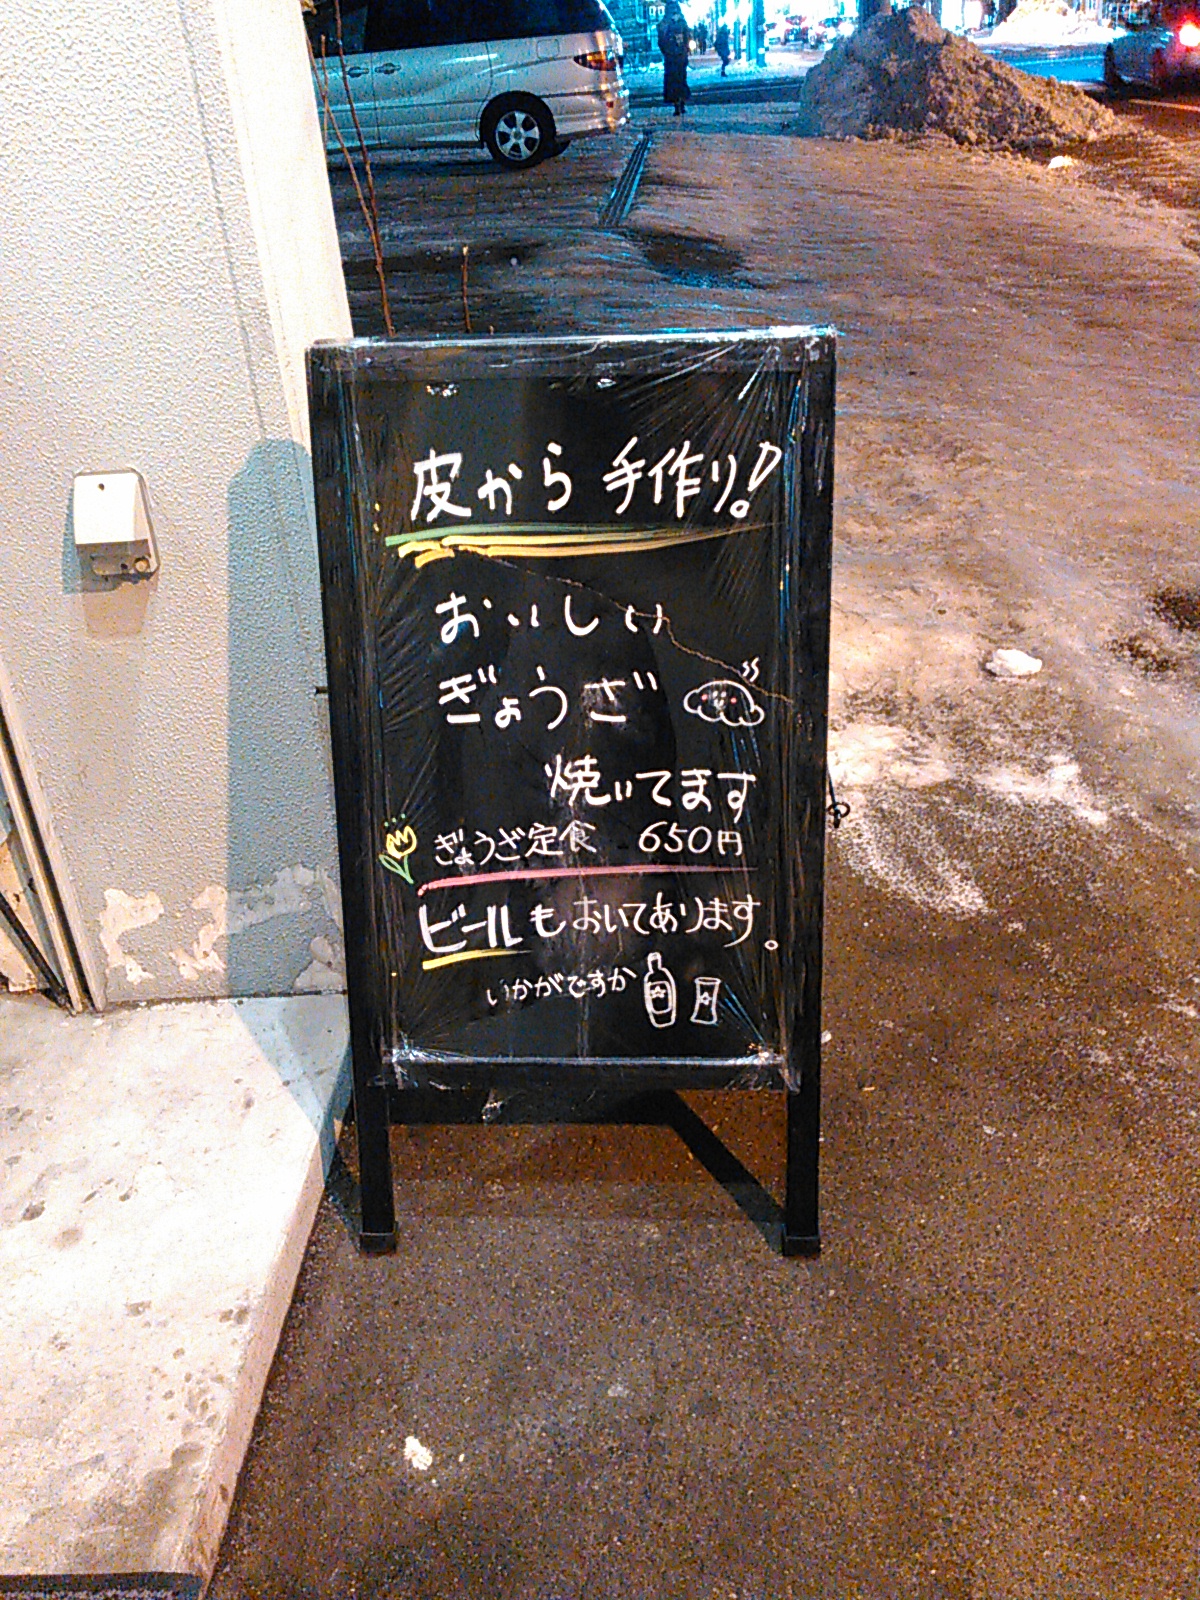 皮から 手作り!
おいしい
ぎょうざ
焼いてます
ぎょうざ定食 650円
ビールもおいてあります。
いかがですか